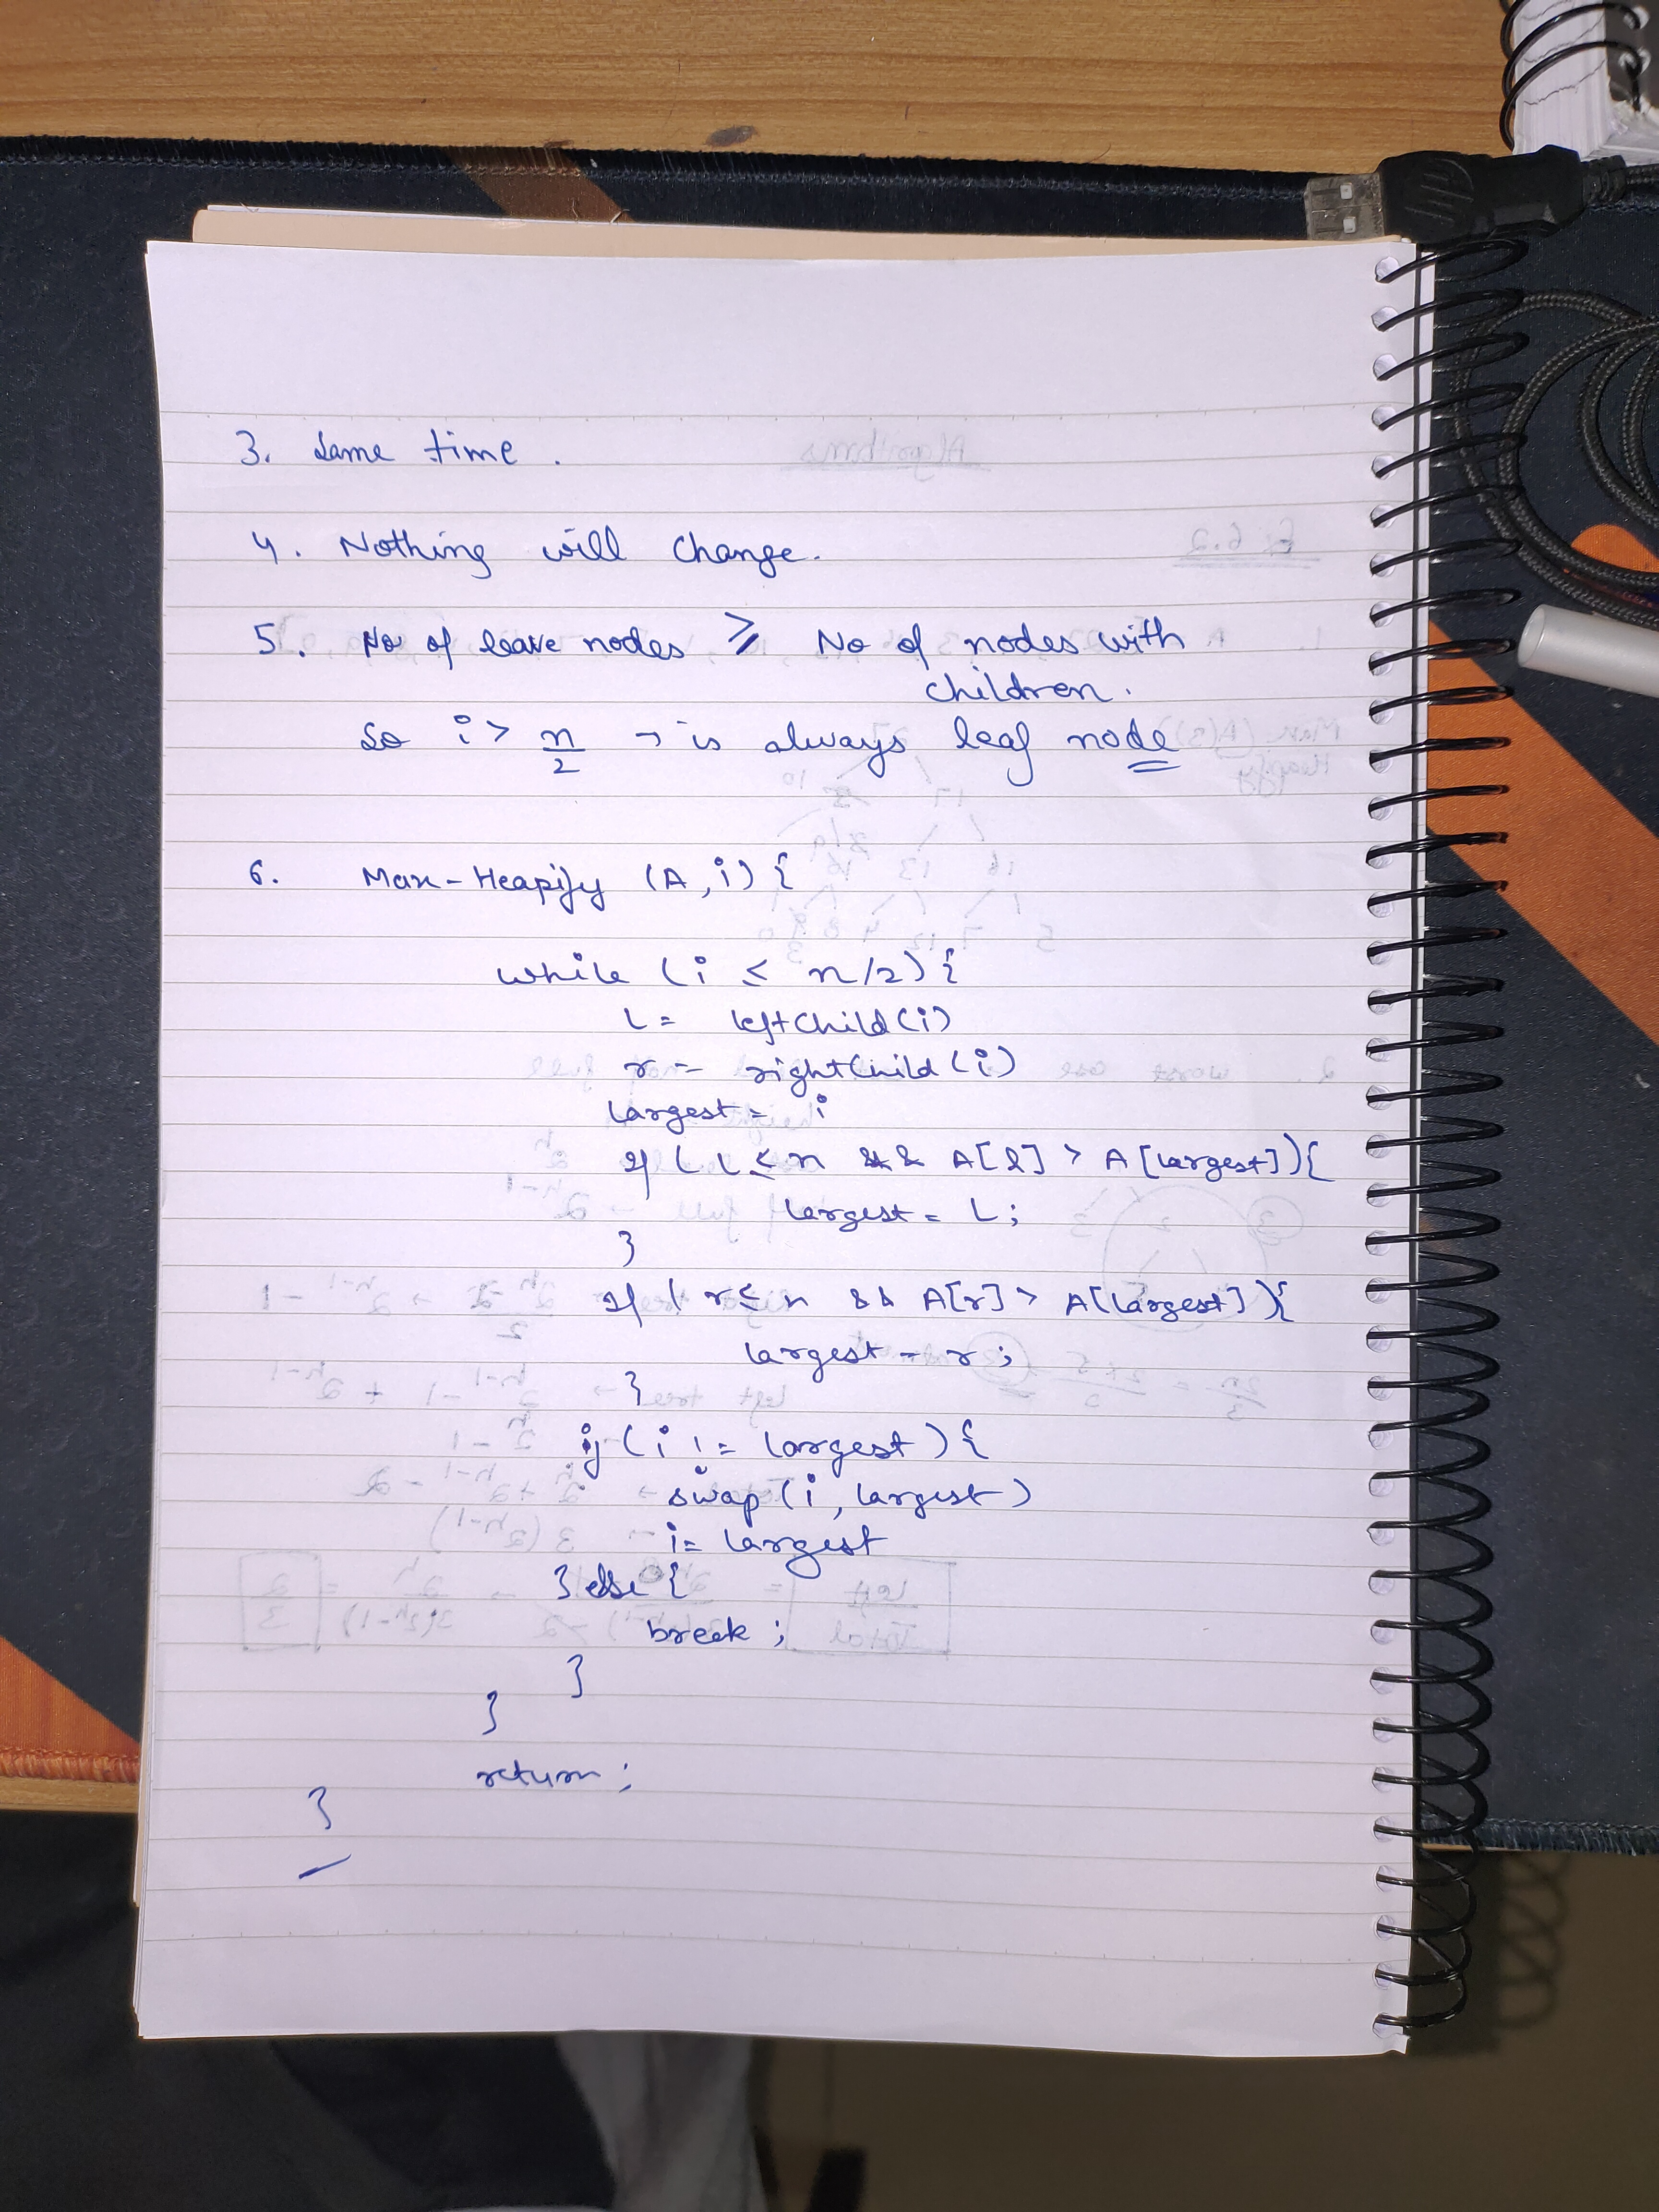 3. Same time.
4. Nothing will change.
5. No of leave nodes ≥ No of nodes with
children.
So i > n/2 → is always leaf node
6. Max-Heapify (A, i) {
while (i ≤ n/2) {
L = leftChild(i)
r = rightChild(i)
largest = i
if (L ≤ n && A[l] > A[largest]) {
largest = L;
}
if (r ≤ n && A[r] > A[largest]) {
largest = r;
}
if (i != largest) {
swap (i, largest)
i = largest
} else {
break;
}
}
return;
}